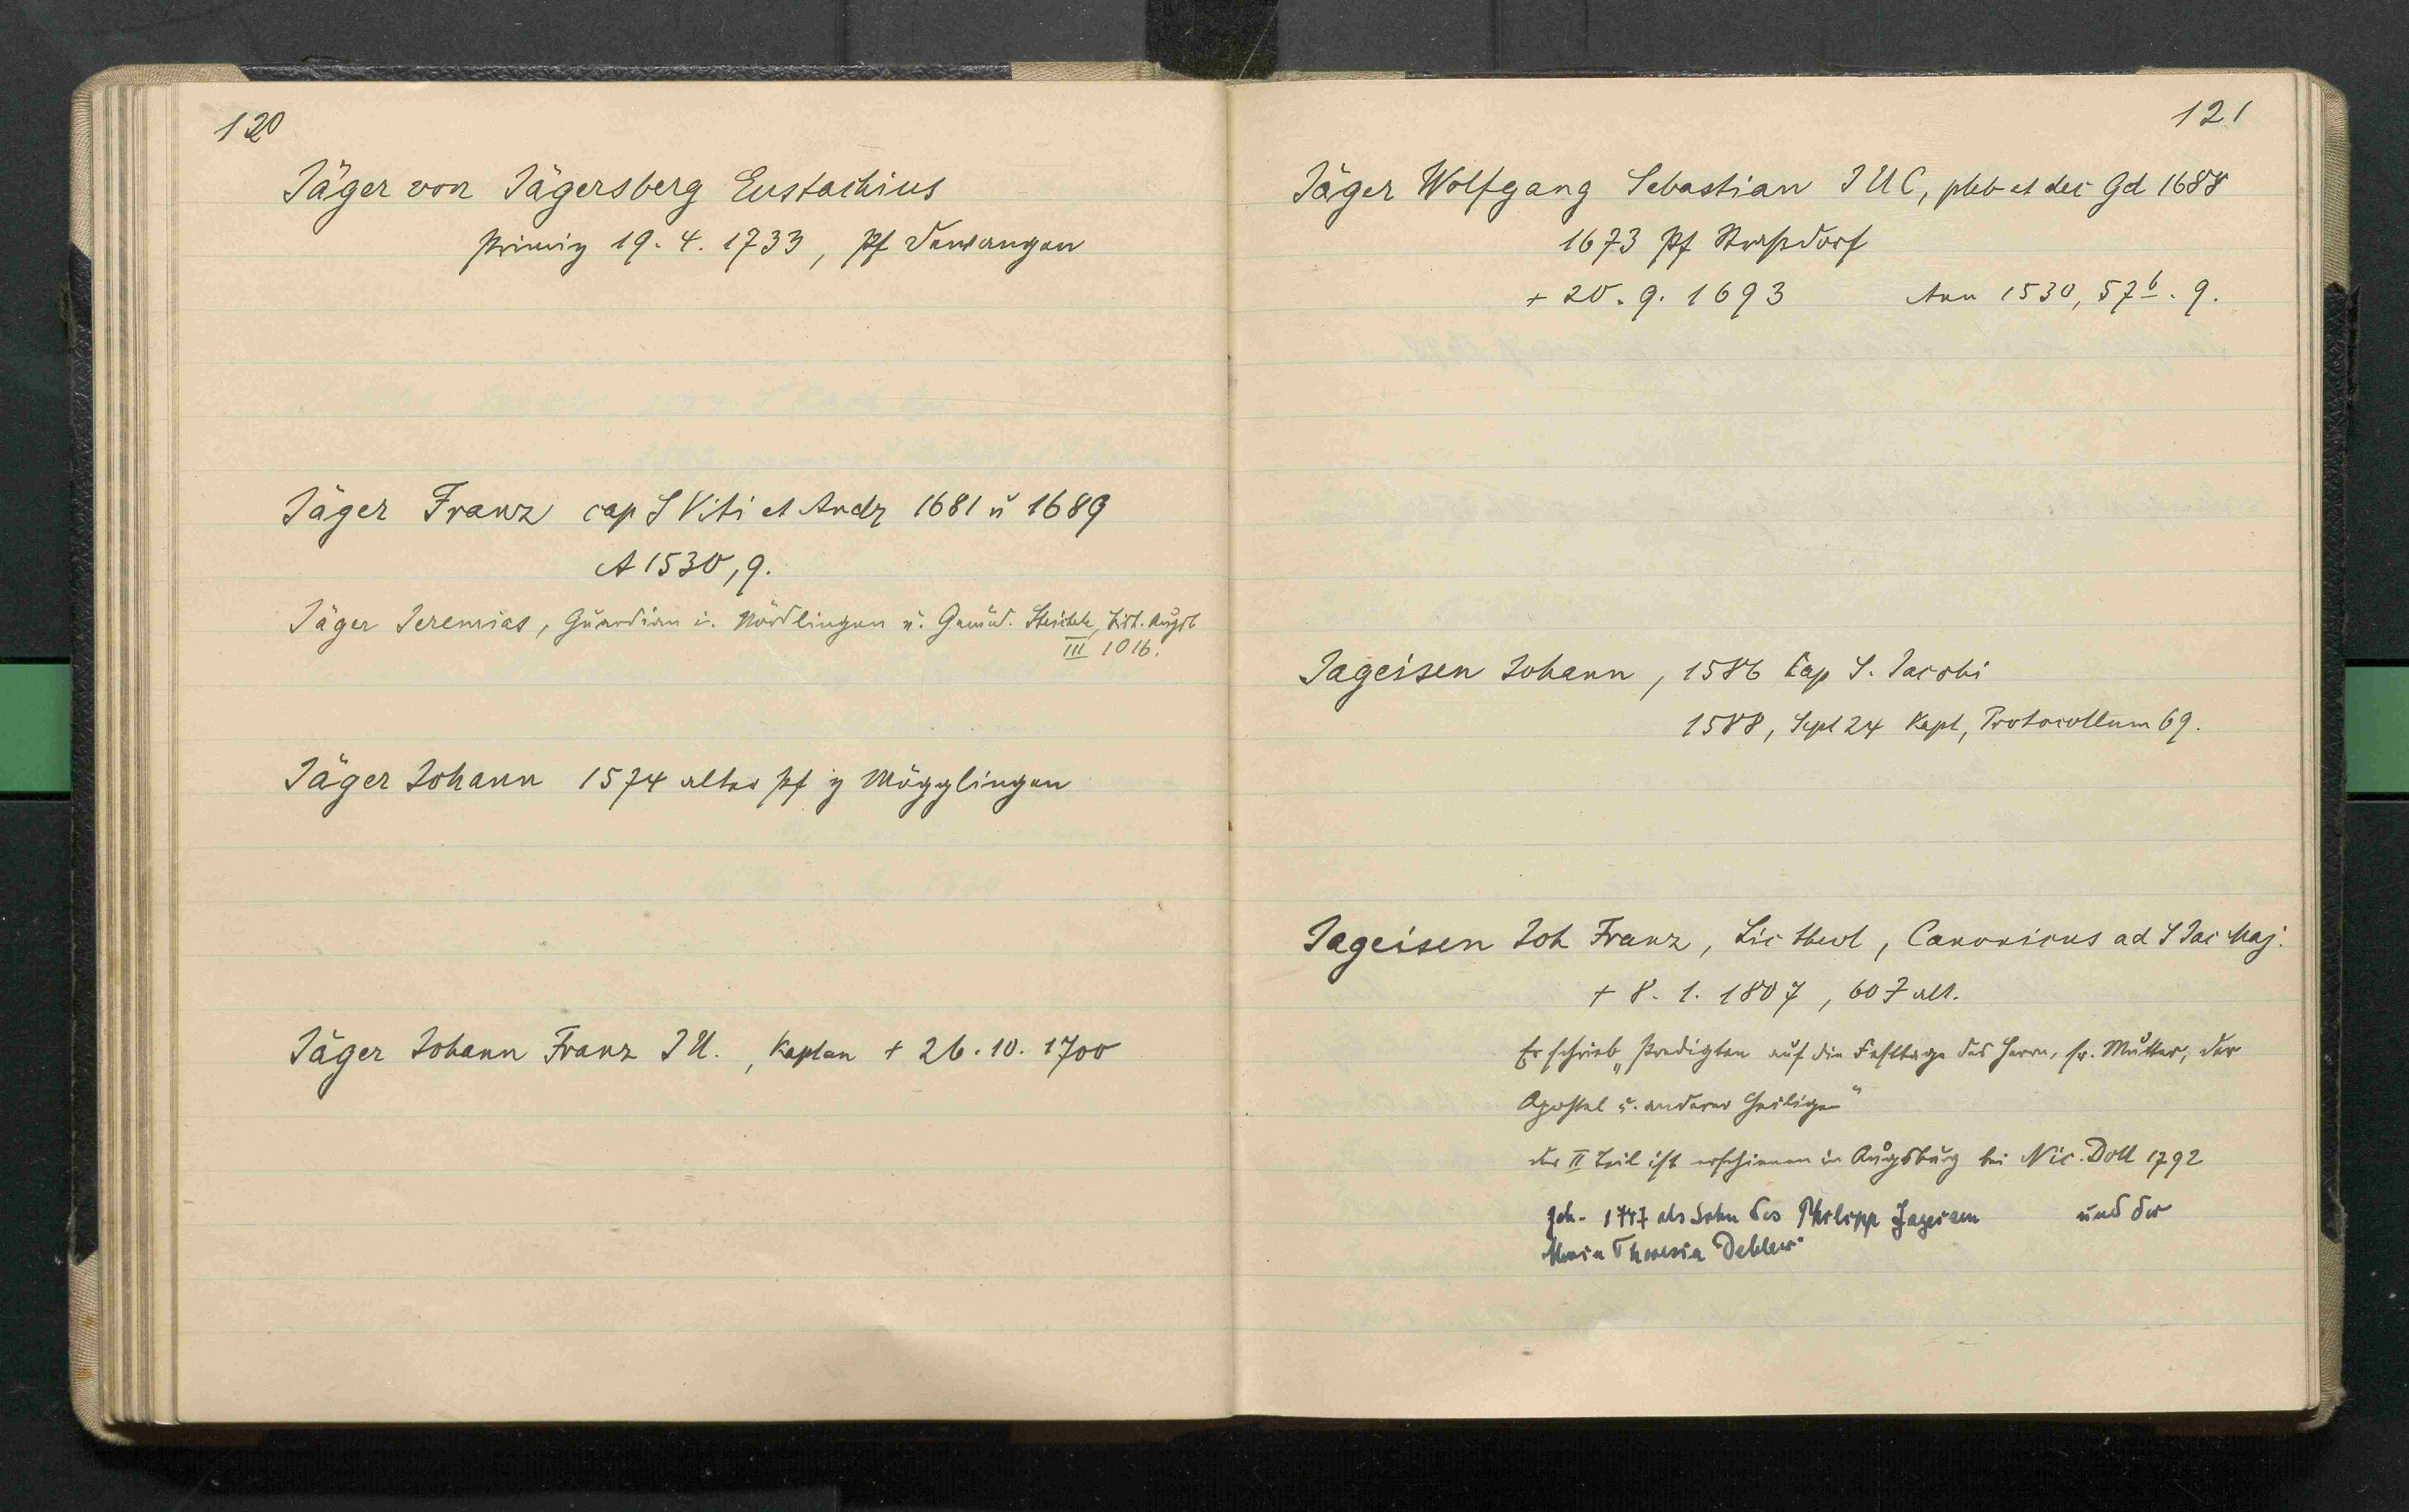 120
Jäger von Jägersberg Eustachius
Primiz 19. 4. 1733, Pf Dewangen
Jäger Franz cap S Viti et Andr 1681 u 1689
A 1530, 9.
Jäger Jeremias, Guardian in Nördlingen u. Gmünd. Steichele, Bist. Augsb
III 1016.
Jäger Johann 1574 alter Pf z Mögglingen
Jäger Johann Franz J U., Kaplan + 26. 10. 1700
121
Jäger Wolfgang Sebastian J U C, pleb et dec Gd 1688
1673 Pf Straßdorf
+ 20. 9. 1693 Ann 1530, 57b. 9.
Jageisen Johann, 1586 Cap S. Jacobi
1588, Sept 24 Kapl, Protocollum 69.
Jageisen Joh Franz, Lic theol, Canonicus ad S Jac Maj.
+ 8. 1. 1807, 60 J alt.
Er schrieb „Predigten auf die Festtage des Herrn, sr. Mutter, der
Apostel u. anderer Heiligen“
der II Teil ist erschienen in Augsburg bei Nic. Doll 1792
geb. 1747 als Sohn des Philipp Jageisen und der
Maria Theresia Debler